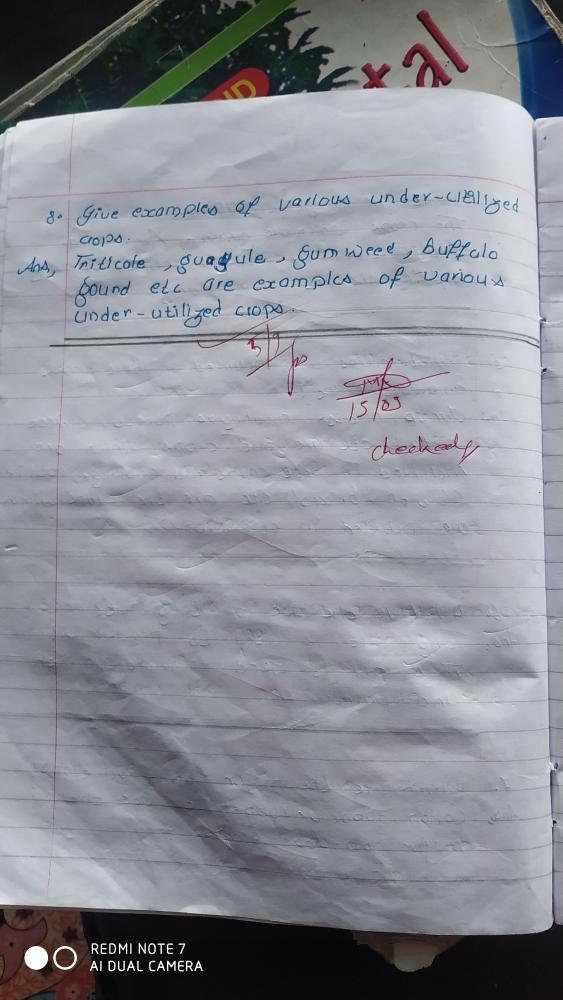 ND
tal
8. Give examples of various under-utilized
crops.
Ans, Triticale, guayule, gumweed, buffalo
gound etc are examples of various
under-utilized crops.
15/03
checked
REDMI NOTE 7
AI DUAL CAMERA